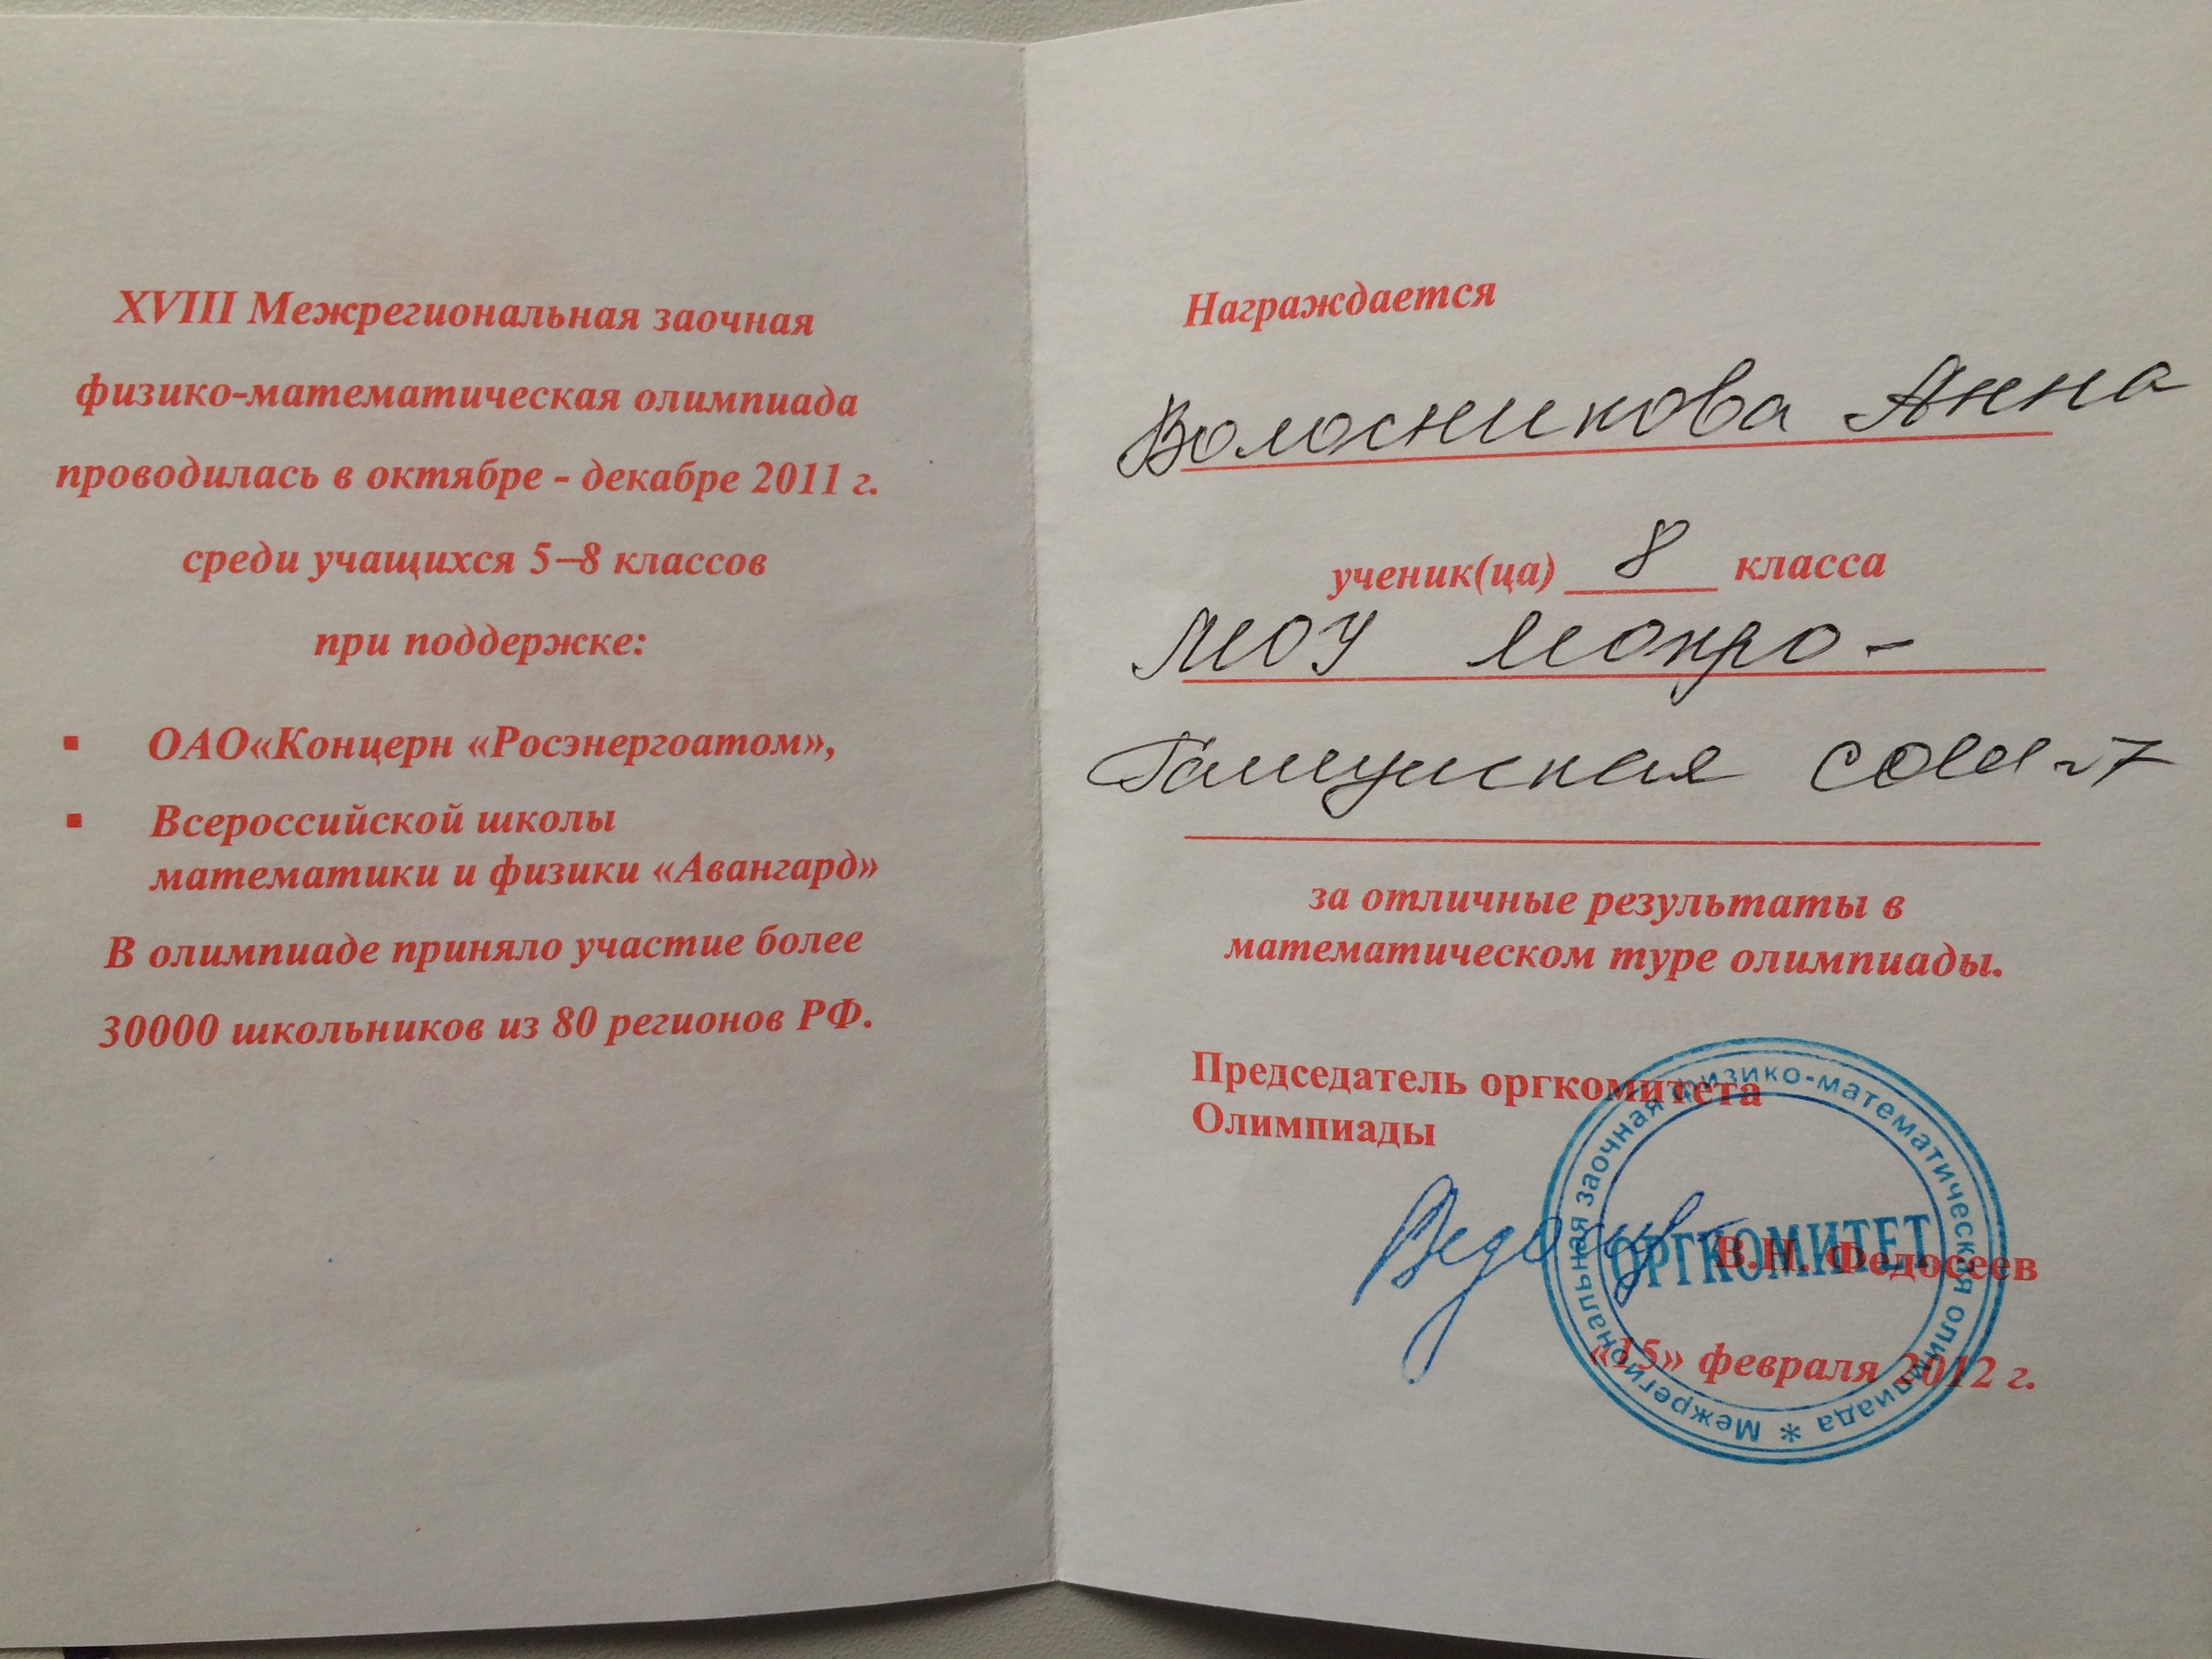 XVIII Межрегиональная заочная
физико-математическая олимпиада
проводилась в октябре - декабре 2011 г.
среди учащихся 5–8 классов
при поддержке:
▪ ОАО«Концерн «Росэнергоатом»,
▪ Всероссийской школы
математики и физики «Авангард»
В олимпиаде приняло участие более
30000 школьников из 80 регионов РФ.
Награждается
Волосникова Анна
ученик(ца) 8 класса
МОУ Мокро-
Гашунская СОШ №7
за отличные результаты в
математическом туре олимпиады.
Председатель оргкомитета
Олимпиады
В.Н. Федосеев
«15» февраля 2012 г.
Межрегиональная заочная физико-математическая олимпиада *
ОРГКОМИТЕТ